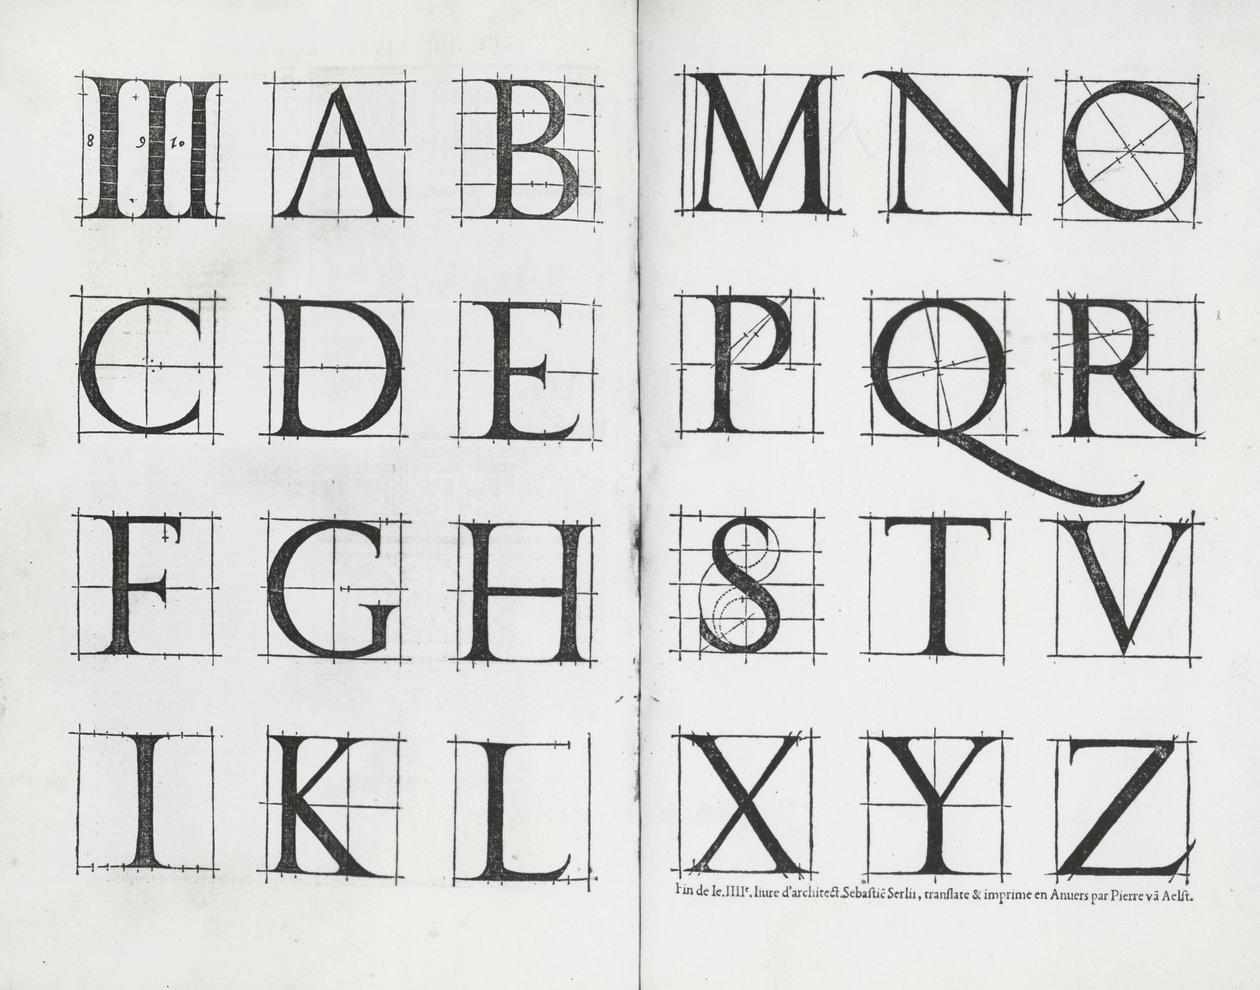 III A B
8 9 10
C D E
F G H
I K L
M N O
P Q R
S T V
X Y Z
Fin de le .IIIIe. liure d'architect. Sebastiē Serlii, translate & imprime en Anuers par Pierre vā Aelst.